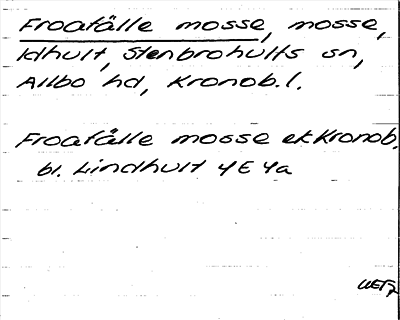 Froafälle mosse, mosse,
Idhult, Stenbrohults sn,
Allbo hd, Kronob.l.
Froafälle mosse ek Kronob.
bl. Lindhult 4E 4a